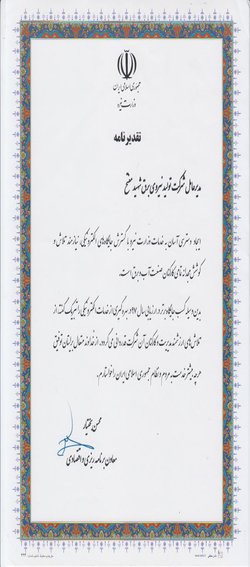 جمهوری اسلامی ایران
وزارت نیرو
تقدیرنامه
مدیرعامل شرکت تولید نیروی برق شهید مفتح
ایجاد دسترسی آسان به خدمات وزارت نیرو با گسترش جایگاه‌های الکترونیکی، نیازمند تلاش و
کوشش مجدانه تمامی کارکنان صنعت آب و برق است.
بدین وسیله کسب جایگاه برتر در ارزیابی سال ۹۷ در بهره‌گیری از خدمات الکترونیکی را تبریک گفته، از
تلاش‌های ارزشمند مدیریت و کارکنان آن شرکت قدردانی می‌گردد. از خداوند متعال برایتان توفیق
هر چه بیشتر خدمت به مردم و نظام جمهوری اسلامی ایران را خواستارم.
محسن بختیار
معاون برنامه ریزی و اقتصادی